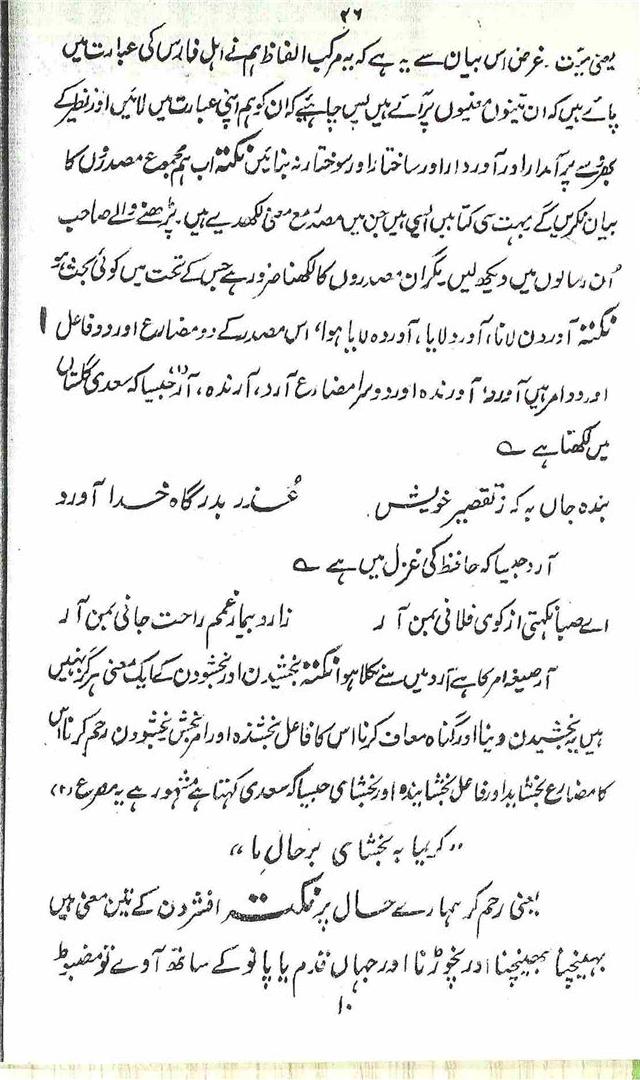 ۴۶
یعنی میّت۔ غرض اس بیان سے یہ ہے کہ یہ مرکب الفاظ ہم نے اہل فارس کی عبارت میں
پائے ہیں کہ ان تینوں معنیوں پر آئے ہیں پس چاہئے کہ ان کو ہم اپنی عبارت میں لائیں اور نظیر کے
بھروسے پر آمدار اور آوردار اور ساختار اور سوختار نہ بنائیں نکتہ اب ہم مجموع مصدروں کا
بیان نکریں گے بہت سی کتابیں ایسی ہیں جن میں مصدر مع معنی لکھ دیے ہیں۔ پڑھنے والے صاحب
اُن رسالوں میں دیکھ لیں۔ مگر ان مصدروں کا لکھنا ضرور ہے جس کے تحت میں کوئی بحث ہو
نکتہ آوردن لانا، آورد لایا، آوردہ لایا ہوا، اس مصدر کے دو مضارع اور دو فاعل ا
اور دو امر ہیں آورد، آورندہ اور دوسرا مضارع آرد، آرندہ، آر جیسا کہ سعدی گلستاں
میں لکھتا ہے
بندہ ہماں بہ کہ ز تقصیر خویش عُذر بدرگاہ خدا آورد
آر جیسا کہ حافظ کی غزل میں ہے
اے صبا نکہتی از کوی فلانی بمن آر زار و بیمار غمم راحت جانی بمن آر
آر صیغہ امر کا ہے آرد میں سے نکلا ہوا نکتہ بخشیدن اور بخشودن کے ایک معنی ہرگز نہیں
ہیں یہ بخشیدن دینا اور گناہ معاف کرنا اس کا فاعل بخشندہ اور امر بخش بخشودن رحم کرنا اس
کا مضارع بخشاید اور فاعل بخشایندہ اور بخشای جیسا کہ سعدی کہتا ہے مشہور ہے یہ مصرع (۲)
"کریما بہ بخشای بر حال ما"
یعنی رحم کر ہمارے حال پر نکتہ افشردن کے تین معنی ہیں
بھینچنا اور نچوڑنا اور جہاں قدم یا پانو کے ساتھ آوے تو مضبوط
۱۰